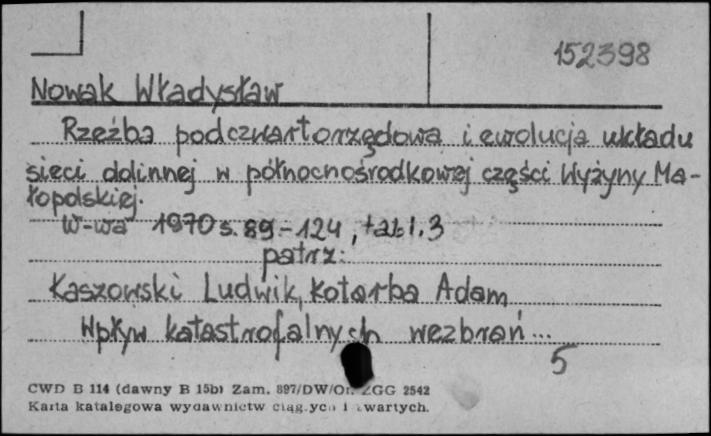 152398
Nowak Władysław
Rzeźba podczwartorzędowa i ewolucja układu
sieci dolinnej w północnośrodkowej części Wyżyny Ma-
łopolskiej.
W-wa 1970 s. 89-124, tabl. 3
patrz:
Kaszowski Ludwik, Kotarba Adam
Wpływ katastrofalnych wezbrań...
5
CWD B 114 (dawny B 15b) Zam. 897/DW/Or. ZGG 2542
Karta katalogowa wydawnictw ciągłych i zwartych.